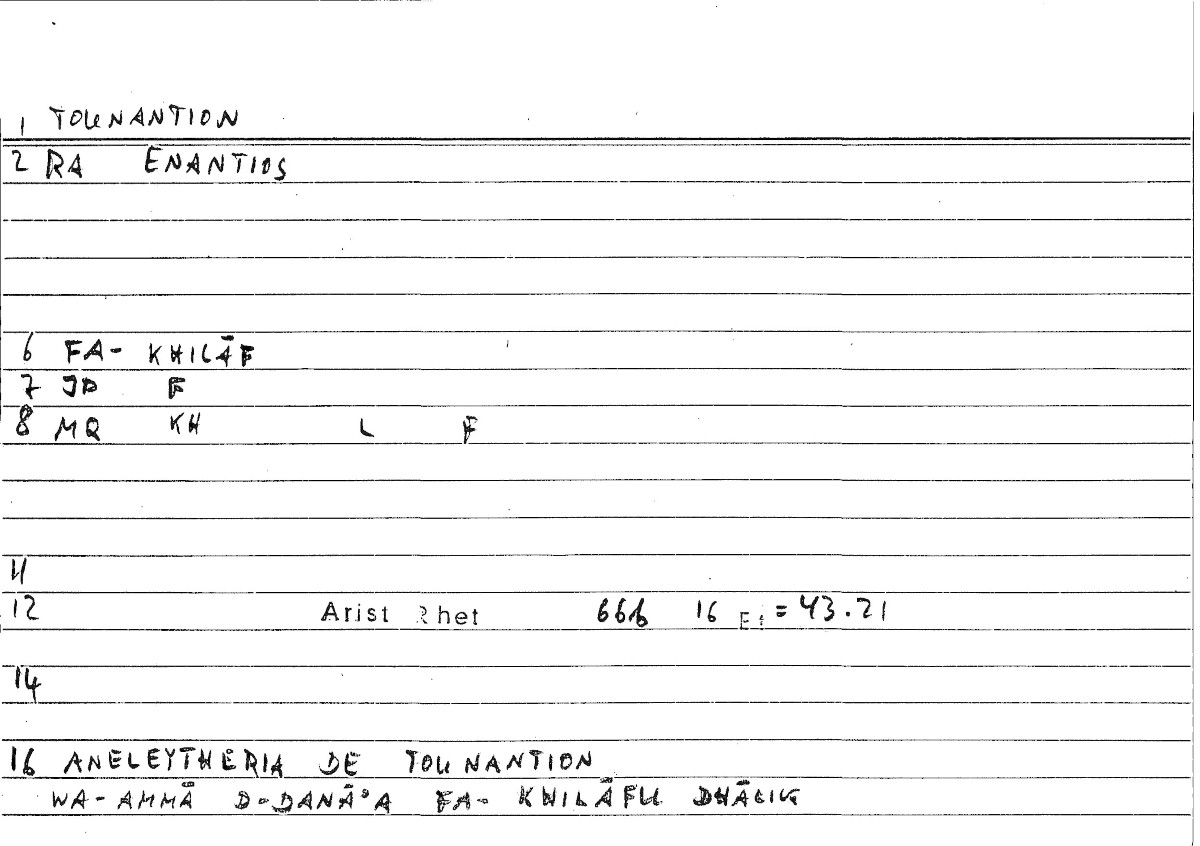 1 TOUNANTION
2 RA ENANTIOS
6 FA- KHILĀF
7 JP F
8 MQ KH L F
11
12 Arist Rhet 66b 16 Ei = 43.21
14
16 ANELEYTHERIA DE TOUNANTION
WA-AMMĀ D-DANĀ'A FA- KHILĀFU DHĀLIK